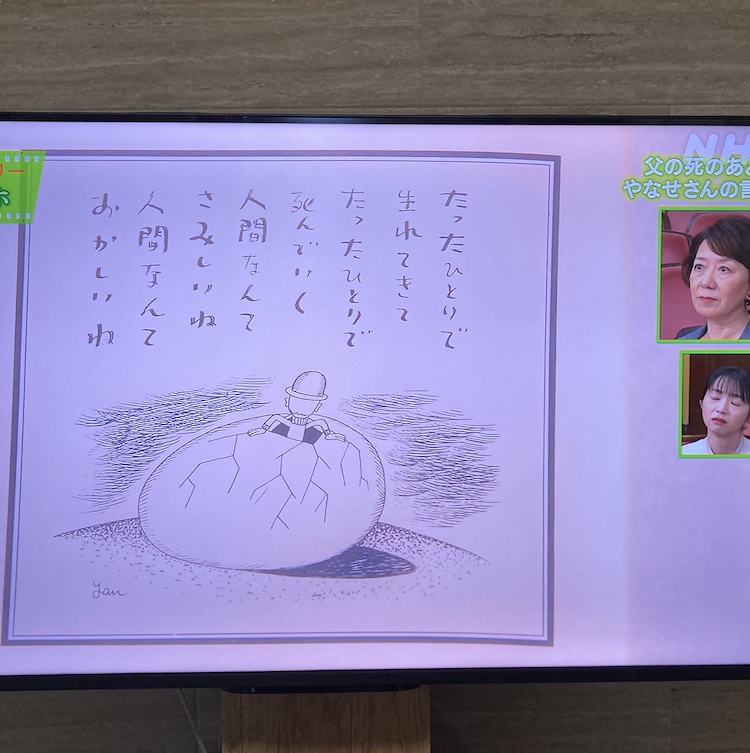 たったひとりで
生れてきて
たったひとりで
死んでいく
人間なんて
さみしいね
人間なんて
おかしいね
yan
NH
父の死のあ
やなせさんの言
リー
ホ